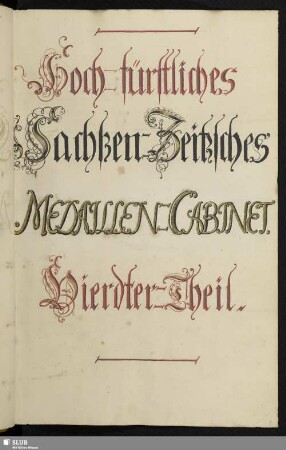 Hoch-fürstliches
Sachßen-Zeitzsches
MEDAILLEN-CABINET.
Vierdter-Theil.
SLUB
Wir führen Wissen.